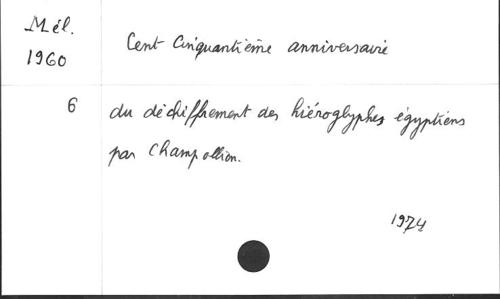 Mél.
1960
Cent Cinquantième anniversaire
6
du déchiffrement des hiéroglyphes égyptiens
par Champollion.
1974